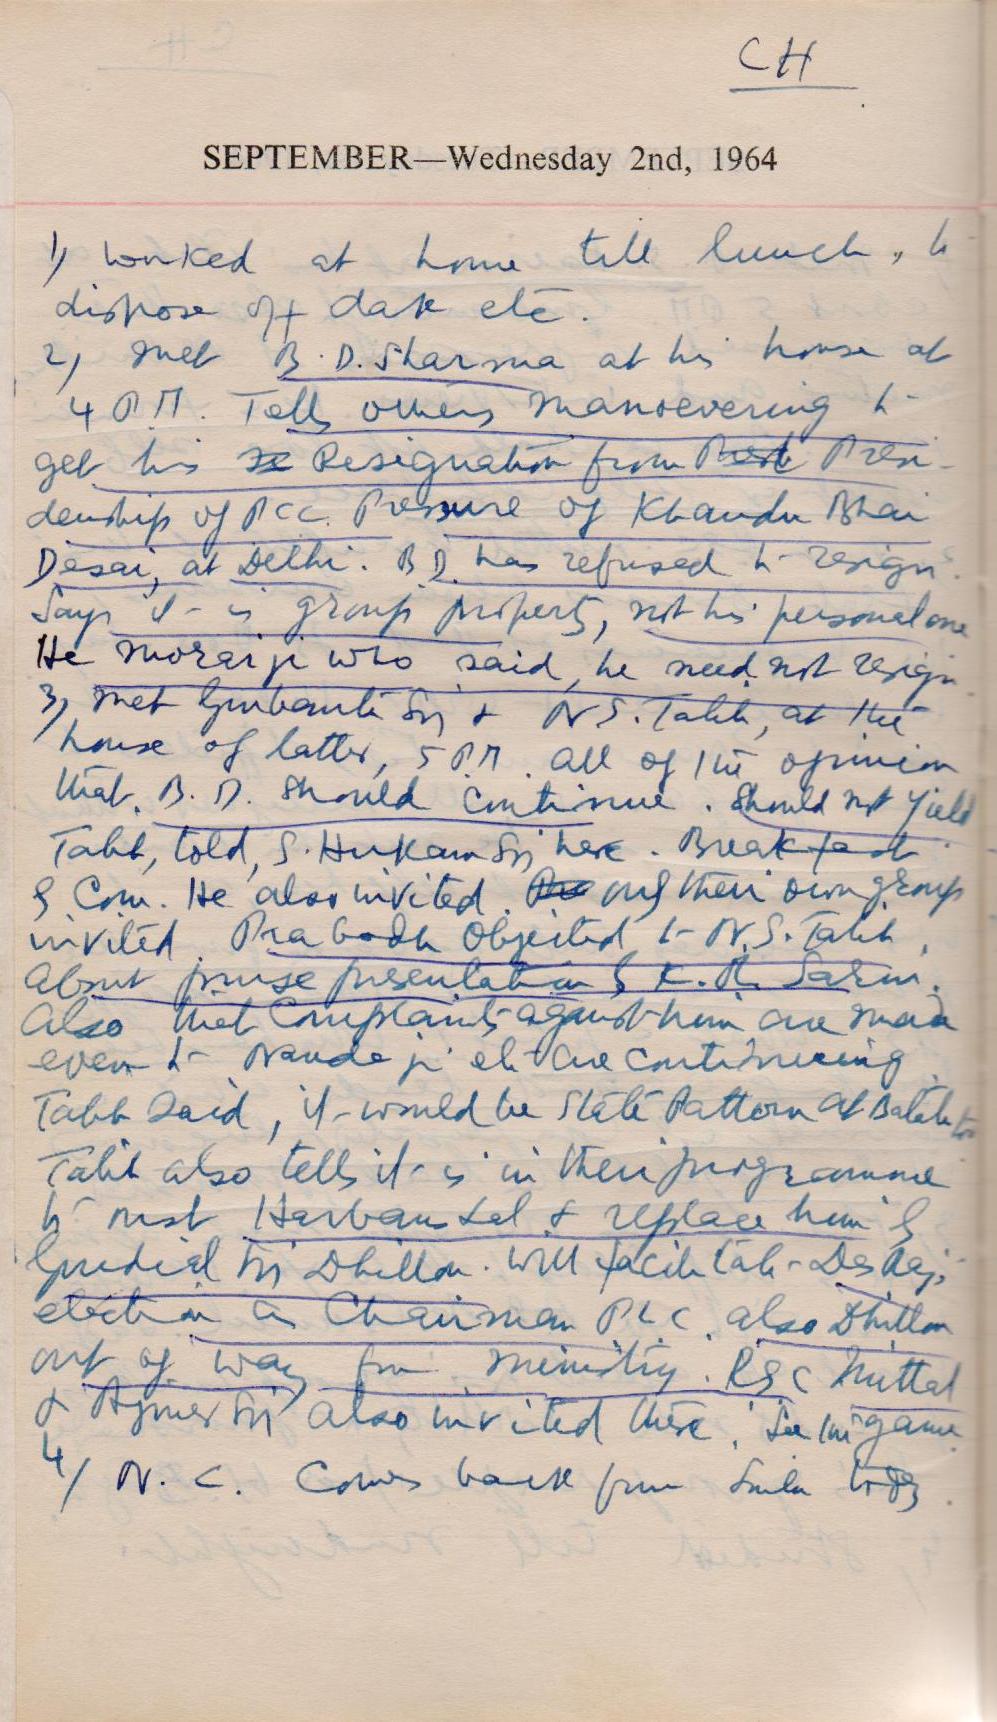 CH
SEPTEMBER—Wednesday 2nd, 1964
1) worked at home till lunch, to
dispose off dak etc.
2) met B. D. Sharma at his house at
4 P.M. Tells others manoevering to
get his Resignation from Presi-
dentship of PCC. Pressure of Khandu Bhai
Desai, at Delhi. B D. has refused to resign.
Says it is group property, not his personal one
He morarji who said, he need not resign
3) met Gurbanta Sn & N S. Talib, at the
house of latter, 5 P.M. all of the opinion
that B. D. should continue. Should not yield
Talib, told, S. Hukam Sn here. Breakfast
& Com. He also invited. only their own group
invited Prabodh Objected to N. S. Talib,
about purse presentation & K. R.
Also that Complaints against him are made
even to Nanda ji etc are continuing
Talib Said, it would be State Pattern at Batala too
Talib also tells it is in their programme
to oust Harbans Lal & replace him by
Gurdial Sn Dhillon. Will facilitate Des Raj's
election as Chairman P L C. also Dhillon
out of way for ministry. R S C Mittal
& Ajmer Sn also invited there. See the game
4) N. C. Comes back from Simla today.